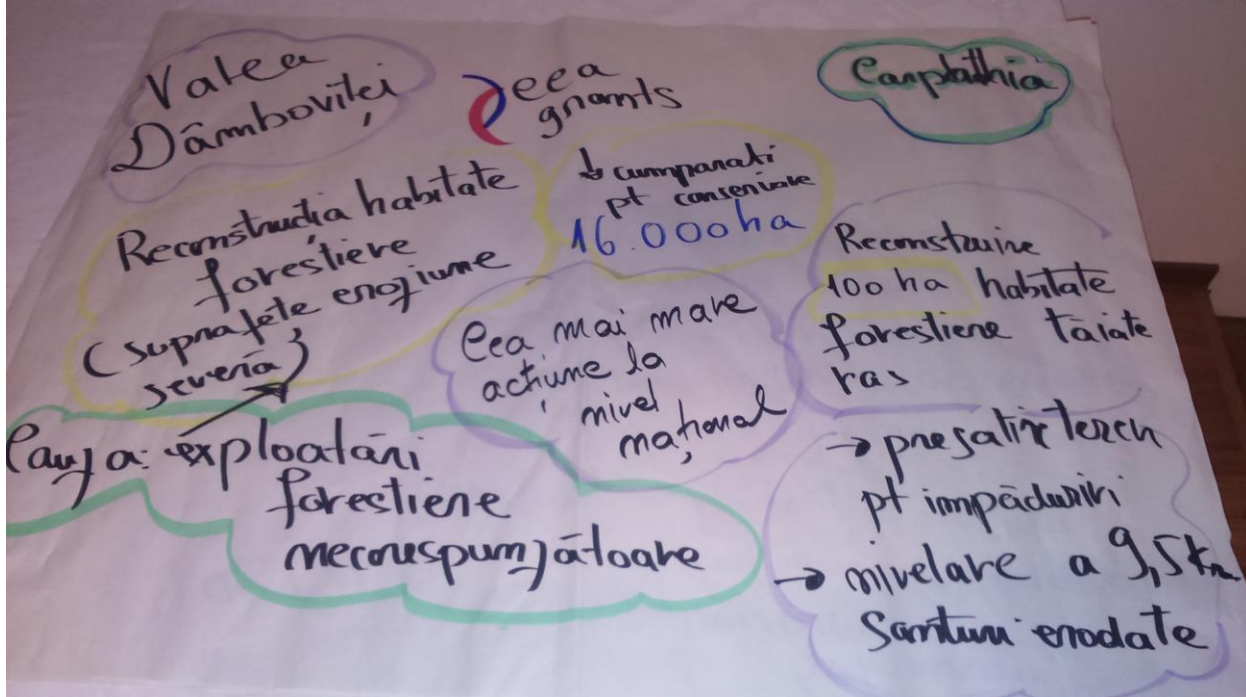 Valea
Dâmboviței
eea
grants
Carpathia
Reconstrucția habitate
forestiere
(suprafețe eroziune
severă)
↓ cumparati
pt conservare
16.000 ha
Reconstruire
100 ha habitate
forestiere tăiate
ras
Cea mai mare
acțiune la
nivel
național
Cauza: exploatări
forestiere
necorespunzătoare
→ teren
pt împăduriri
→ nivelare a 9,5 km
Santuri erodate